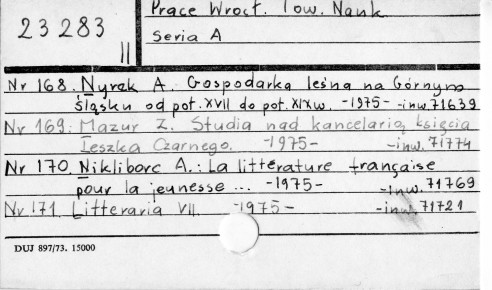 Prace Wrocł. Tow. Nauk.
23283
II
Seria A
Nr 168. Nyrek A. Gospodarka leśna na Górnym
śląsku od poł. XVII do poł. XIX w. -1975- -inw. 71639
Nr 169. Mazur Z. Studia nad kancelarią księcia
Leszka Czarnego. -1975- -inw. 71774
Nr 170. Nikliborc A.: La littérature française
pour la jeunesse ... -1975- -inw. 71769
Nr 171. Litteraria VII. -1975- -inw. 71721
DUJ 897/73. 15000